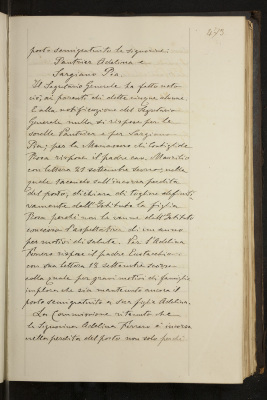 473
posto semigratuito le signorine:
Pautrier Adelina e
Sargiano Pia.
Il Segretario Generale ha fatto noto
ciò, ai parenti di dette cinque alunne.
E alla notificazione del Segretario
Generale nulla si rispose per le
sorelle Pautrier e per Sargiano
Pia; per la Manassero
Rosa rispose il padre cav. Maurilio
con lettera 21 settembre scorso, nella
quale tacendo sull'incorsa perdita
del posto, dichiara di togliere definiti-
vamente dall'Istituto la figlia
Rosa perchè non le venne dall'Istituto
concessa l'aspettativa di un anno
per motivi di salute. Per l'Adelina
Ferrero rispose il padre Eustachio
con sua lettera 13 settembre scorso
colla quale per gravi motivi di famiglia
implora che sia mantenuto ancora il
posto semigratuito a sua figlia Adelina.
La Commissione ritenuto che
la Signorina Adelina Ferrero è incorsa
nella perdita del posto non solo perchè